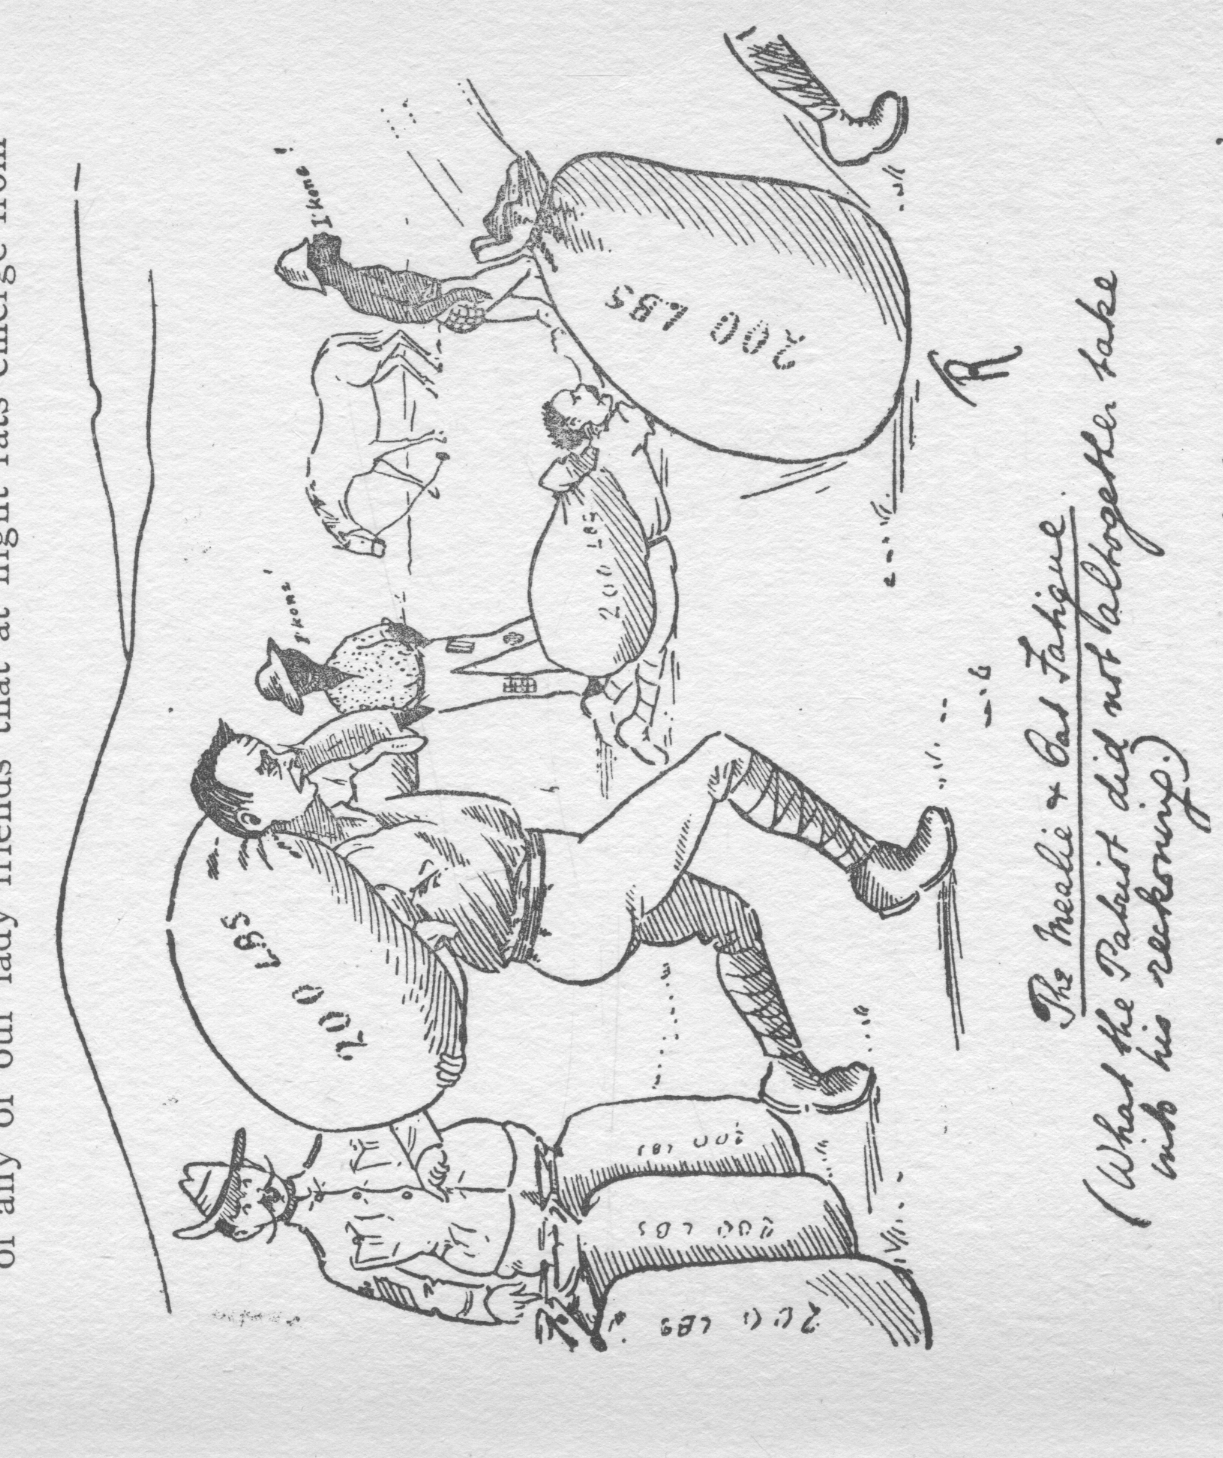 of any of our lady friends that at night rats emerge from
I'kona!
I'kona!
200 LBS
200 LBS
200 LBS
200 LBS
200 LBS
200 LBS
R
The Mealie & Oat Fatigue.
(What the Patriot did not altogether take
into his reckoning.)